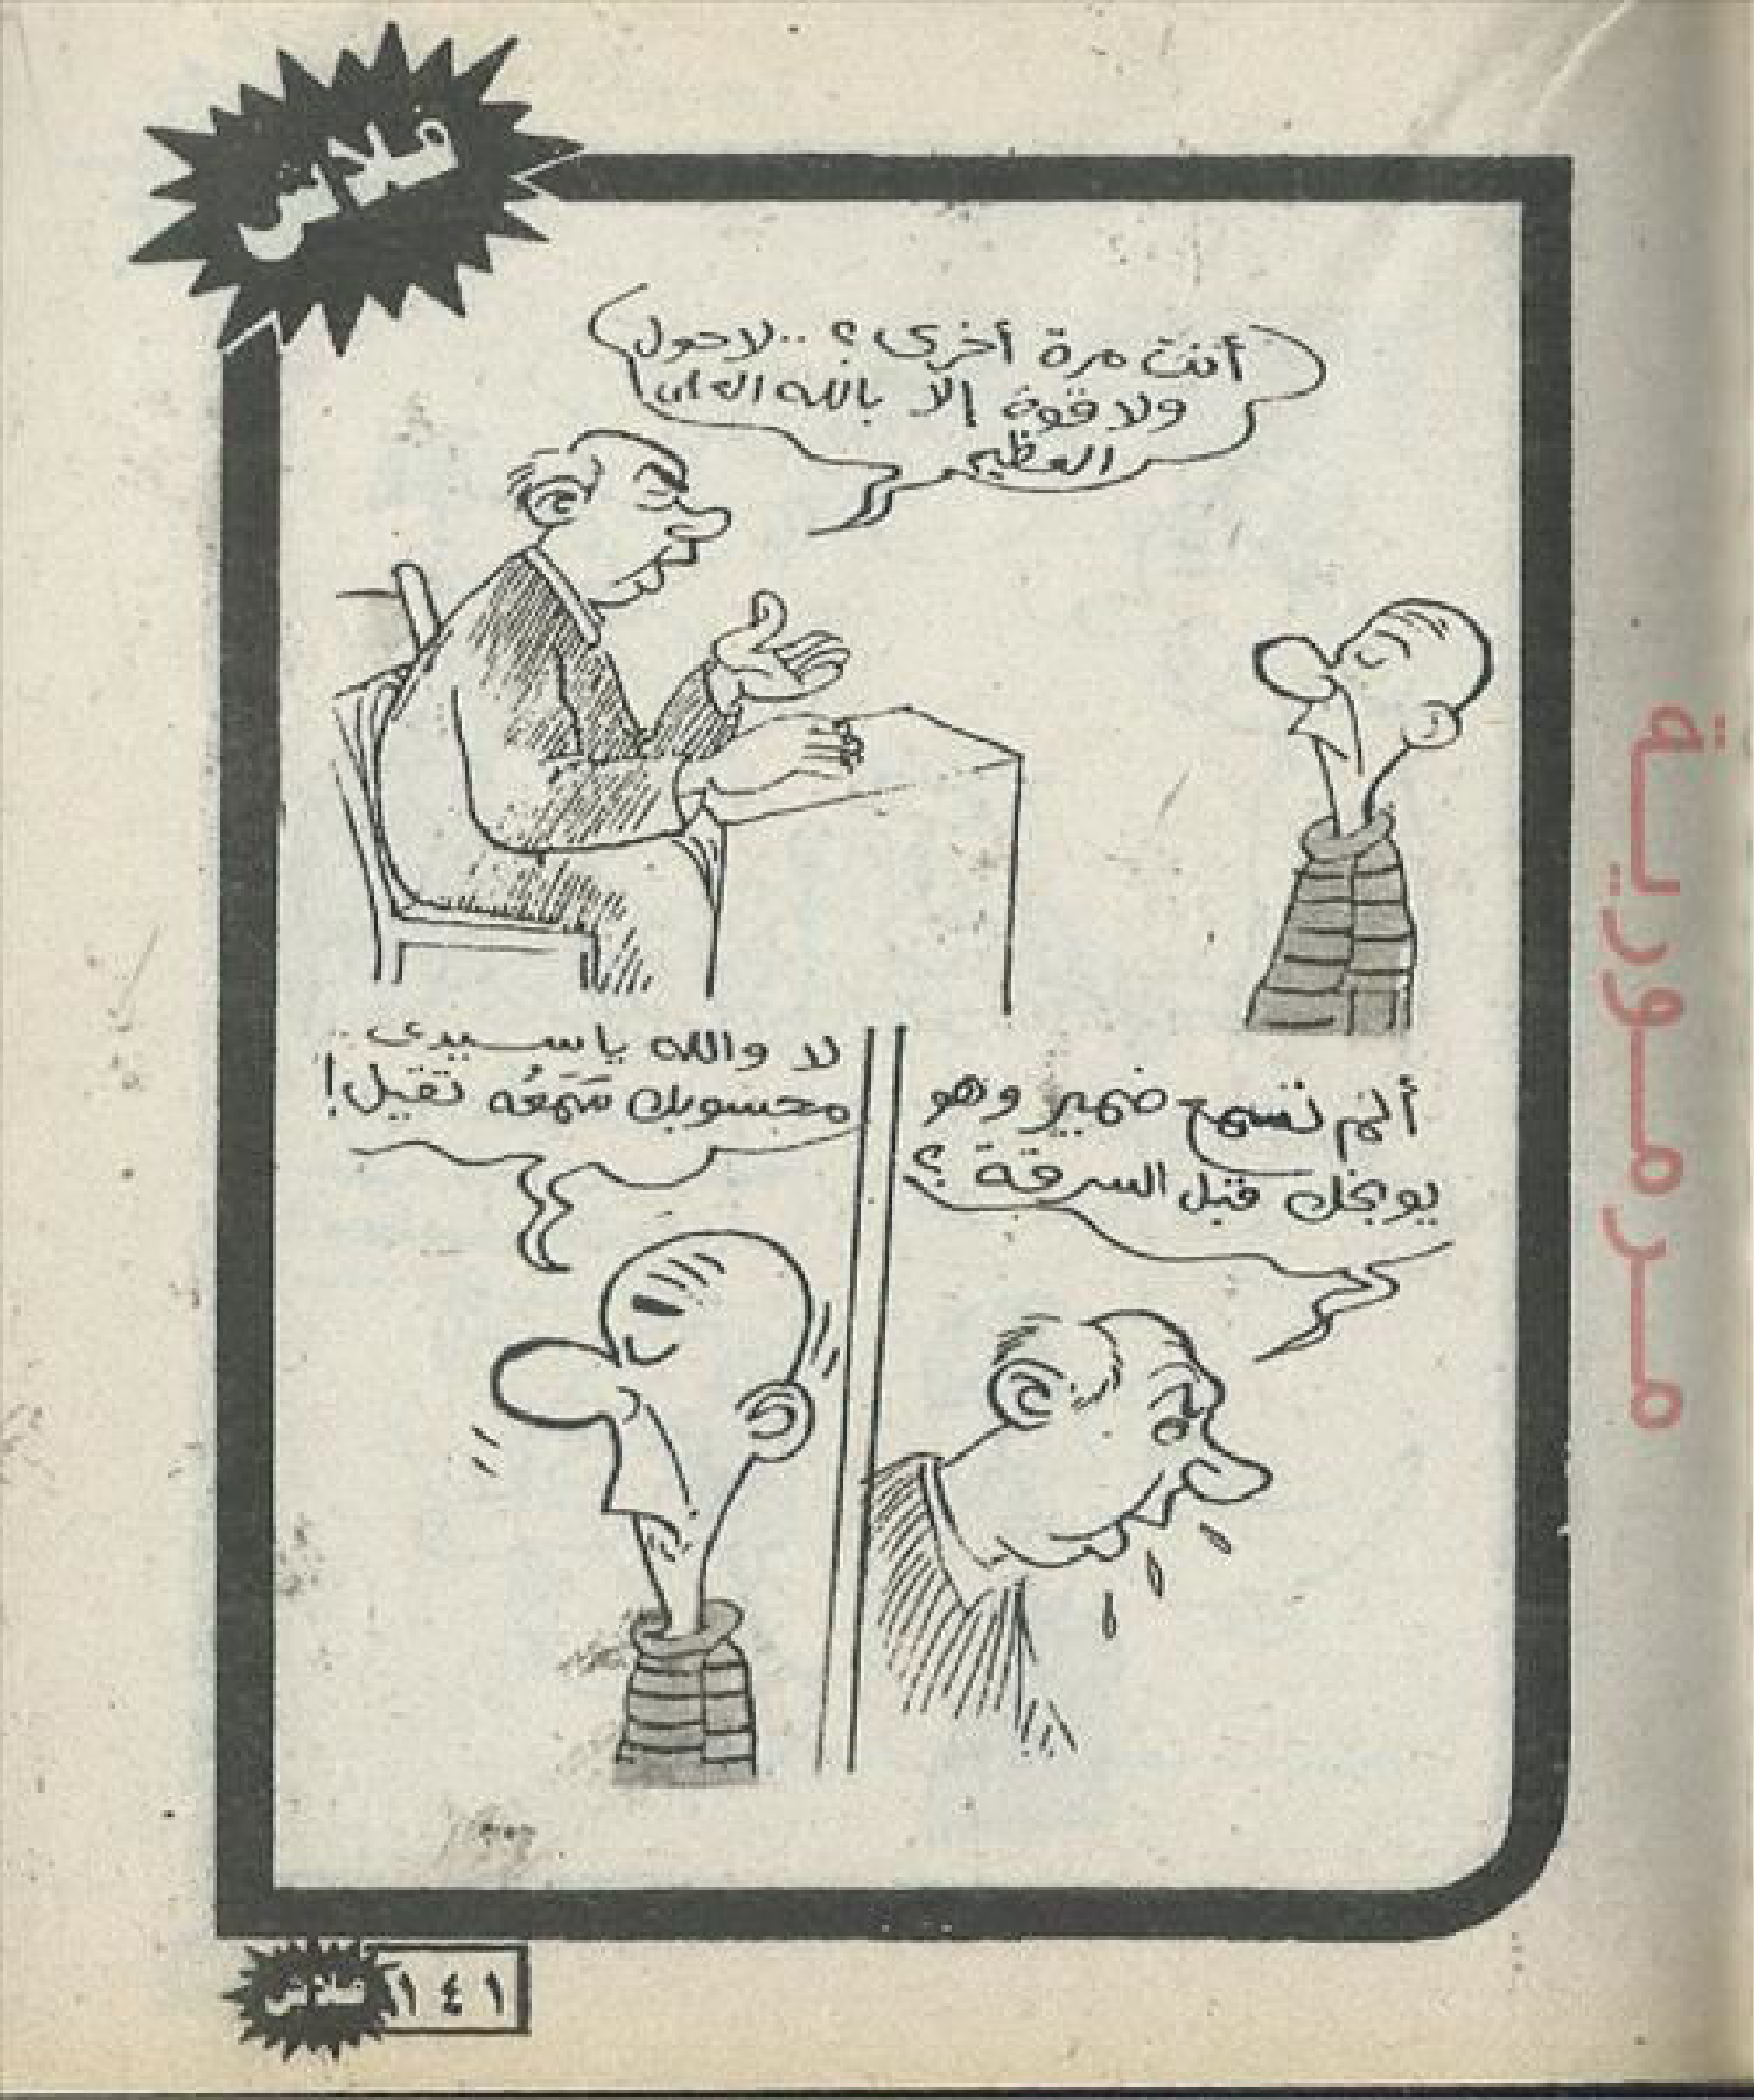 فلاش
أنت مرة أخرى؟..لاحول
ولا قوة إلا بالله العلى
العظيم
ألم تسمع ضمير وهو
يوبخك قبل السرقة؟
لا والله ياسيدى..
محسوبك سَمَعُه تقيل!
مرمورية
فلاش ١٤١